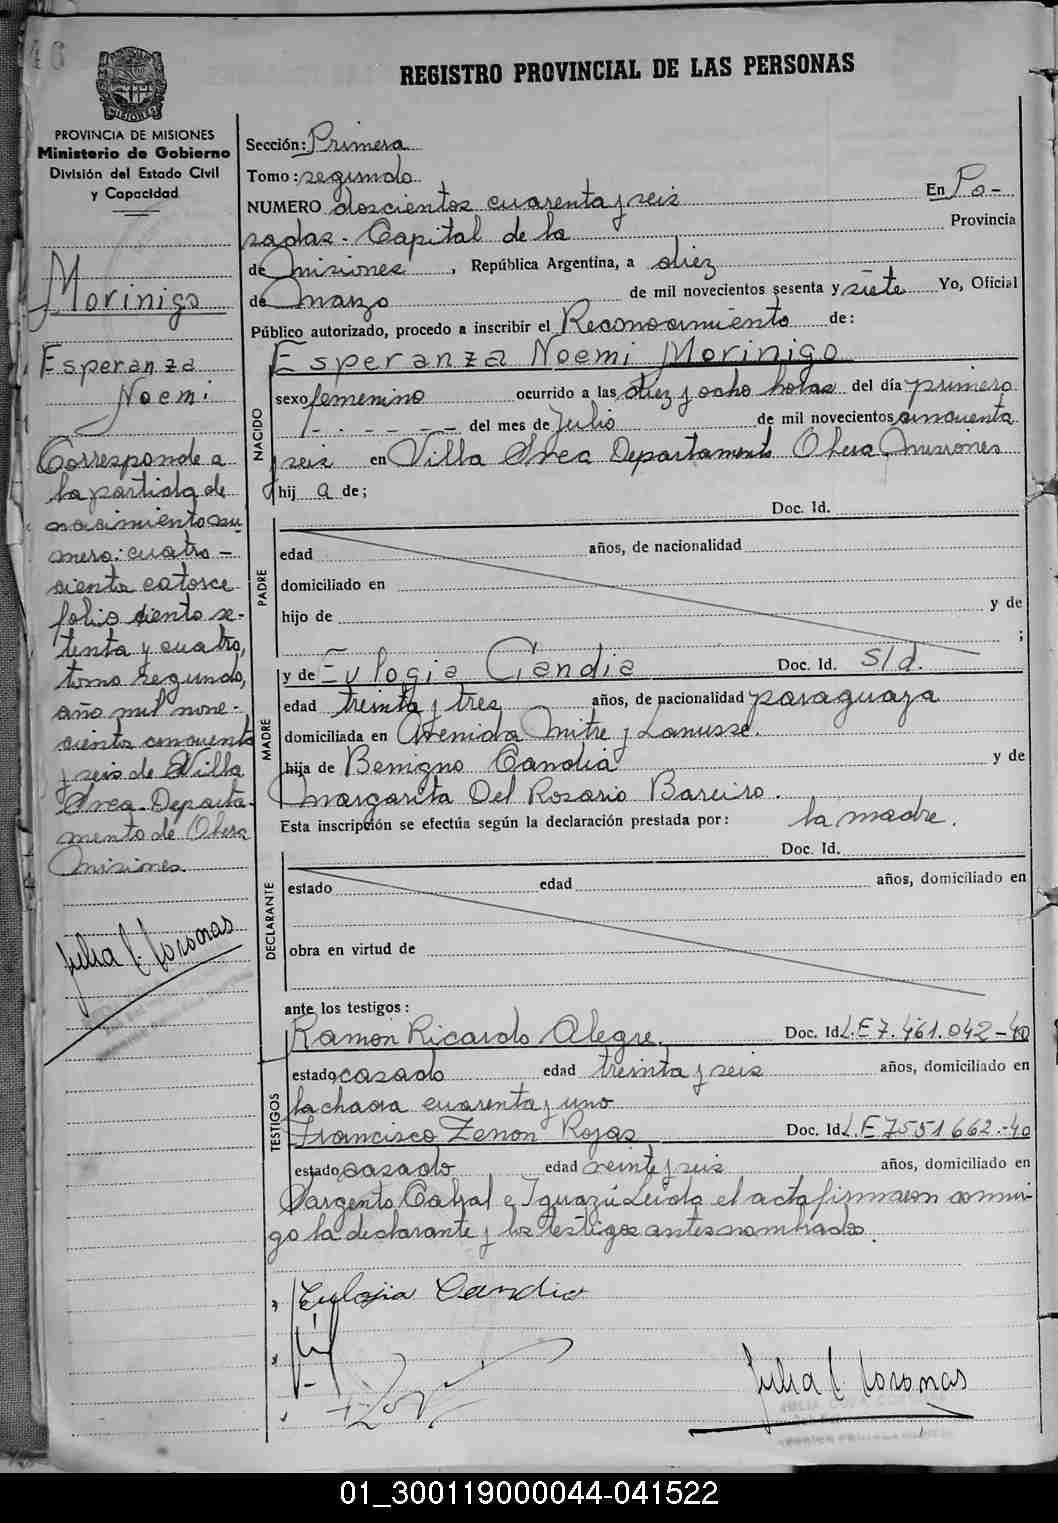 46
REGISTRO PROVINCIAL DE LAS PERSONAS
PROVINCIA DE MISIONES
Ministerio de Gobierno
División del Estado Civil
y Capacidad
Morinigo
Esperanza
Noemi
Corresponde a
la partida de
nacimiento nu-
mero: cuatro-
cienta catorce
folio ciento se-
tenta y cuatro,
tomo segundo,
año mil nove-
cienta cincuenta
y seis de Villa
Svea Departa-
mento de Obera
Misiones.
Julia C. Coronas
Sección: Primera
Tomo: segundo
NUMERO doscientos cuarenta y seis En Po-
sadas - Capital de la Provincia
de Misiones, República Argentina, a diez
de Marzo de mil novecientos sesenta y siete Yo, Oficial
Público autorizado, procedo a inscribir el Reconocimiento de:
Esperanza Noemi Morinigo
NACIDO
sexo femenino ocurrido a las diez y ocho horas del día primero
- - - - - del mes de Julio de mil novecientos cincuenta
y seis en Villa Svea Departamento Obera Misiones
hij a de;
Doc. Id.
PADRE
edad años, de nacionalidad
domiciliado en
hijo de y de
;
MADRE
y de Eulogia Candia Doc. Id. S/d.
edad treinta y tres años, de nacionalidad paraguaya
domiciliada en Avenida Mitre y Lanusse.
hija de Benigno Candia y de
Margarita Del Rosario Bareiro.
Esta inscripción se efectúa según la declaración prestada por: la madre.
Doc. Id.
DECLARANTE
estado edad años, domiciliado en
obra en virtud de
ante los testigos:
TESTIGOS
Ramon Ricardo Alegre. Doc. Id. L.E 7.461.042-40
estado casado edad treinta y seis años, domiciliado en
la chacra cuarenta y uno
Francisco Zenon Rojas Doc. Id. L.E 7551662.-40
estado casado edad veinte y seis años, domiciliado en
Sargento Cabral e Iguazú Leida el acta firmaron conmi-
go la declarante y los testigos antes nombrados.
Eulojia Candia
Julia C. Coronas
01_300119000044-041522